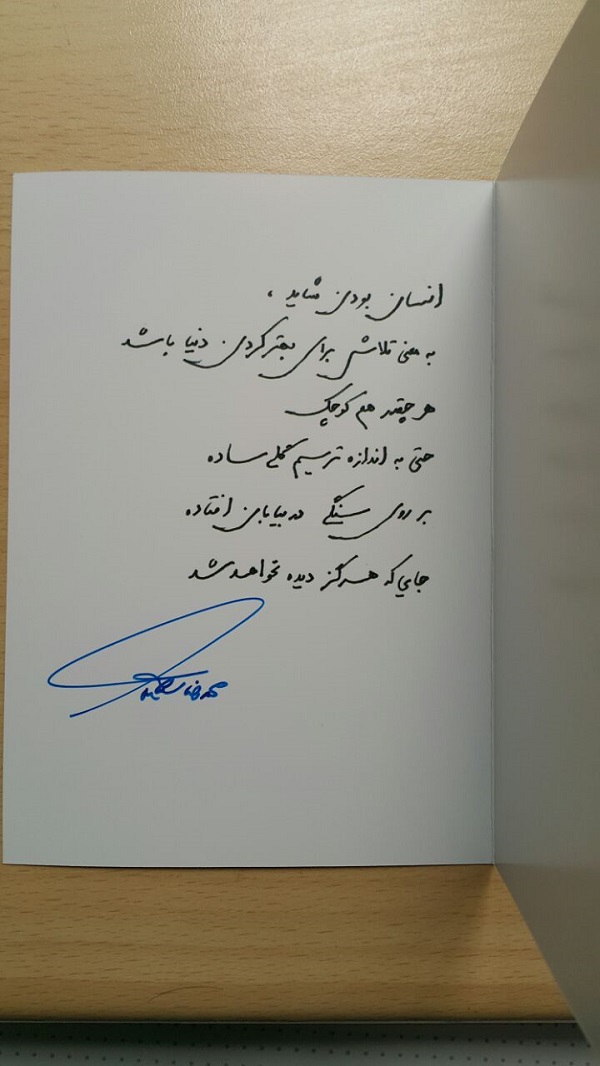 انسان بودن شاید،
به معنی تلاش برای بهتر کردن دنیا باشد
هر چقدر هم کوچک
حتی به اندازه ترسیم گلی ساده
بر روی سنگی در بیابان افتاده
جایی که هرگز دیده نخواهد شد